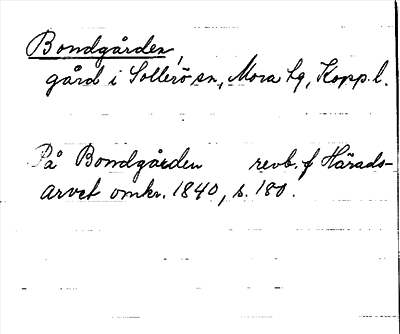 Bondgården,
gård i Sollerö sn, Mora tg, Kopp.l.
På Bondgården revb. f Härads-
arvet omkr. 1840, s. 180.